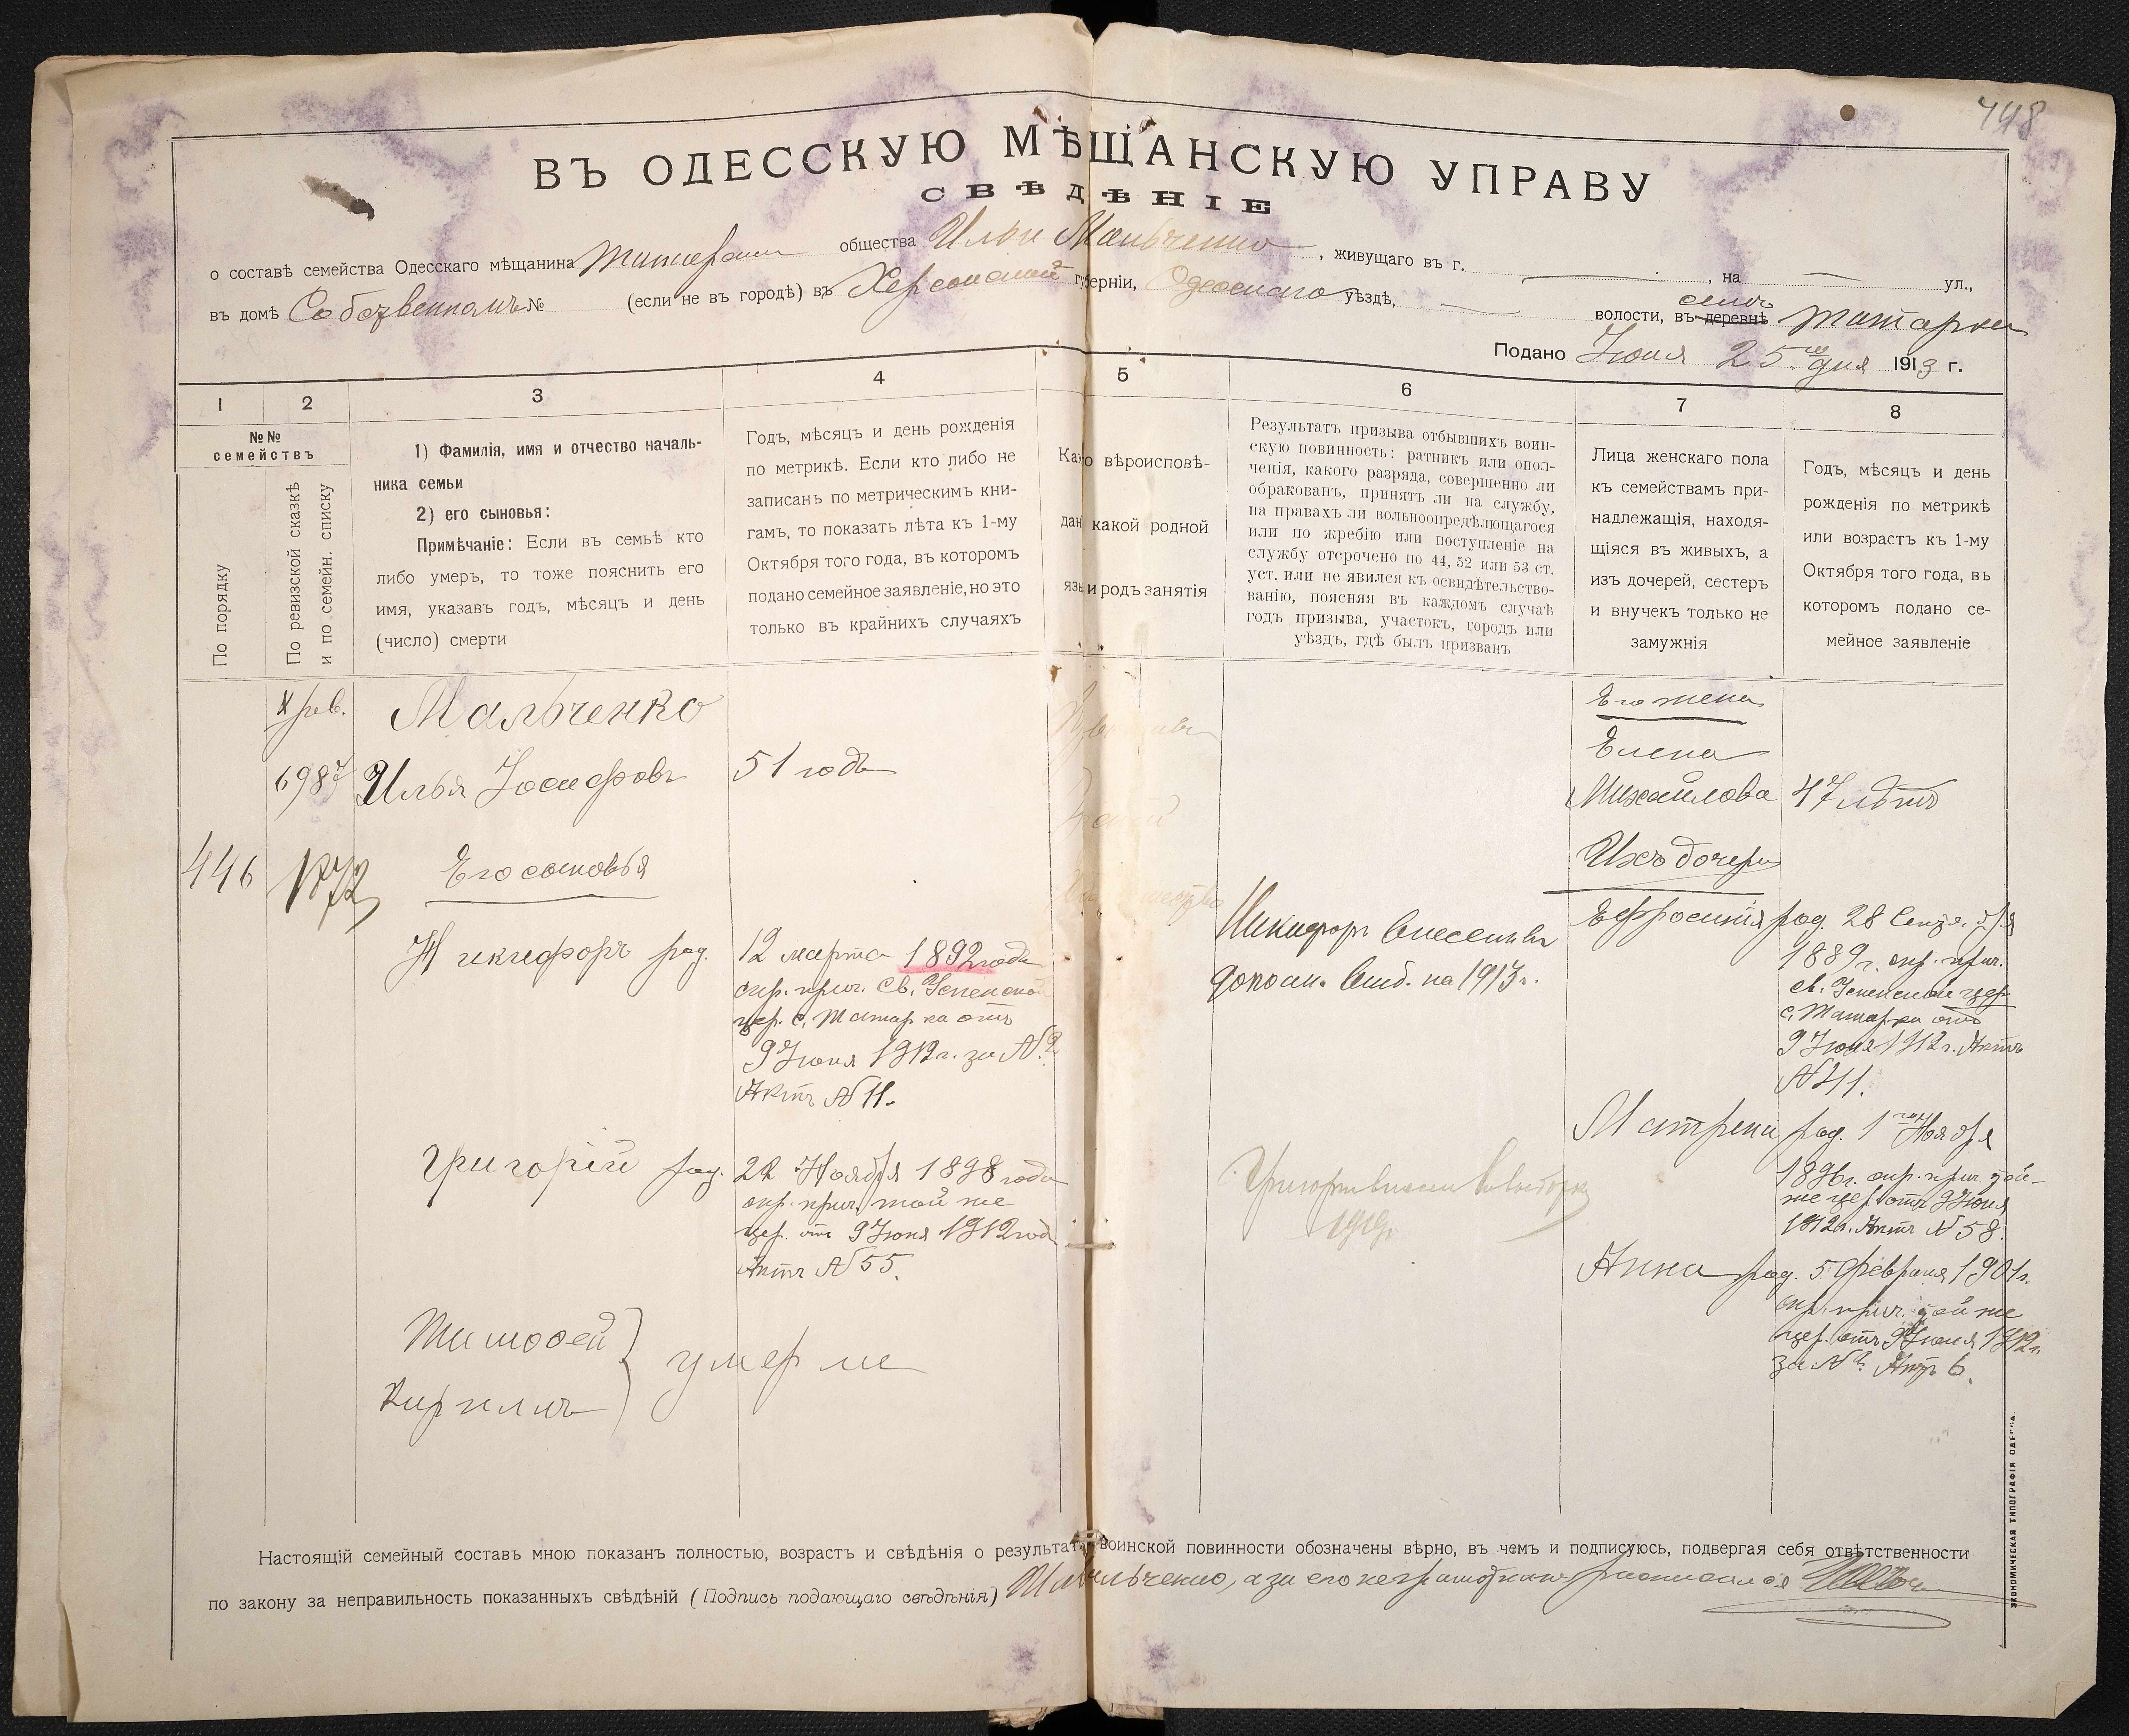 498
ВЪ ОДЕССКУЮ МѢЩАНСКУЮ УПРАВУ
СВѢДѢНІЕ
о составѣ семейства Одесскаго мѣщанина общества Ильи Мальченко, живущаго въ г. , на ул.,
въ домѣ Собственномъ № (если не въ городѣ) въ Херсонской губерніи, Одесскаго уѣздѣ, волости, въ деревнѣ селѣ Татарки
Подано Іюня 25 го дня 1913 г.
1
2
3
4
5
6
7
8
№№
семействъ
По порядку
По ревизской сказкѣ
и по семейн. списку
1) Фамилія, имя и отчество началь-
ника семьи
2) его сыновья:
Примѣчаніе: Если въ семьѣ кто
либо умеръ, то тоже пояснить его
имя, указавъ годъ, мѣсяцъ и день
(число) смерти
Годъ, мѣсяцъ и день рожденія
по метрикѣ. Если кто либо не
записанъ по метрическимъ кни-
гамъ, то показать лѣта къ 1-му
Октября того года, въ которомъ
подано семейное заявленіе, но это
только въ крайнихъ случаяхъ
вѣроисповѣ-
какой родной
и родъ занятія
Результатъ призыва отбывшихъ воин-
скую повинность: ратникъ или опол-
ченія, какого разряда, совершенно ли
обракованъ, принятъ ли на службу,
на правахъ ли вольноопредѣляющагося
или по жребію или поступленіе на
службу отсрочено по 44, 52 или 53 ст.
уст. или не явился къ освидѣтельство-
ванію, поясняя въ каждомъ случаѣ
годъ призыва, участокъ, городъ или
уѣздъ, гдѣ былъ призванъ
Лица женскаго пола
къ семействамъ при-
надлежащія, находя-
щіяся въ живыхъ, а
изъ дочерей, сестеръ
и внучекъ только не
замужнія
Годъ, мѣсяцъ и день
рожденія по метрикѣ
или возрастъ къ 1-му
Октября того года, въ
которомъ подано се-
мейное заявленіе
X рев.
6987
446
1872
Мальченко
Илья Іосифовъ
51 годъ
Его сыновья
Никифоръ род.
12 марта 1892 года
спр. прич. Св. Успенской
цер. с. Татарка отъ
9 Іюня 1912 г. за №?
Актъ № 11.
Григорій род.
22 Ноября 1898 года
спр. прич. той же
цер. отъ 9 Іюня 1912 год
Актъ № 55.
Тимофей
Кириллъ
умерли
Никифоръ внесенъ въ
на 1913 г.
1919
Его жена
Елена
Михайлова
47 лѣтъ
Ихъ дочери
Ефросинія
род. 28 Сентября
1889 г. спр. прич.
Св. Успенской цер
с. Татарка отъ
9 Іюня 1912 г. Актъ
№ 41.
Матрена
род. 1 го Ноября
1896 г. спр. прич. той-
же цер. отъ 9 Іюня
1912 г. Актъ № 58.
Анна
род. 5 Февраля 1901 г.
спр. прич. той же
цер. отъ 9 Іюня 1912 г.
за №? Актъ 6.
Настоящій семейный составъ мною показанъ полностью, возрастъ и свѣдѣнія о результатѣ воинской повинности обозначены вѣрно, въ чемъ и подписуюсь, подвергая себя отвѣтственности
по закону за неправильность показанныхъ свѣдѣній (Подпись подающаго свѣдѣнія) Мальченко, а за его неграмотнаго росписался
ЭКОНОМИЧЕСКАЯ ТИПОГРАФІЯ ОДЕССА